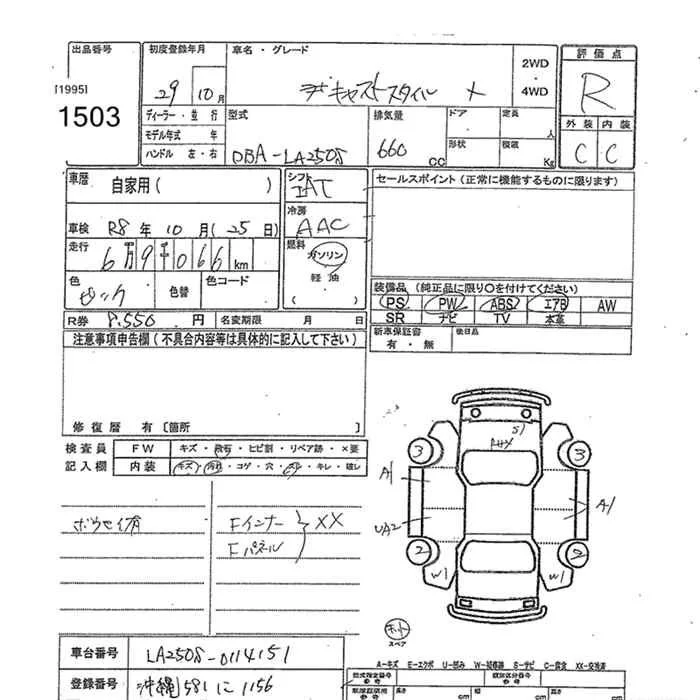 出品番号 初度登録年月 車名・グレード 2WD・4WD 評価点
[1995]
1503
29 10月 キャストスタイル X R
外装 内装
C C
ディーラー・並行 型式 排気量 ドア 定員 人
モデル年式 年 形状 積載 Kg
ハンドル 左・右 DBA-LA250S 660 CC
車歴 自家用( )
シフト IAT
セールスポイント(正常に機能するものに限ります)
冷房 AAC
車検 R8年10月(25日)
走行 6万9千066km
燃料 ガソリン
軽油
( )
色 色替 色コード
装備品(純正品に限り○を付けてください)
PS PW ABS エアB AW
SR ナビ TV 本革
R券 8.550円 名変期限 月 日
新車保証書 有・無 後日品
注意事項申告欄(不具合内容等は具体的に記入して下さい)
修復歴 有〔箇所 〕
検査員 FW キズ・飛石・ヒビ割・リペア跡・×要
記入欄 内装 キズ・汚れ・コゲ・穴・スレ・キレ・破レ
ボウセイ有 Fインナー XX
Fパネル
S1
3 3
A1 A1
UA2
2 2
W1 W1
ホット
スペア
A-キズ E-エクボ U-凹み W-補修跡 S-サビ C-腐食 XX-交換済
車台番号 LA250S-0114151
登録番号 沖縄581に1156
型式指定番号 類別区分番号
長さ cm 幅 cm 高さ